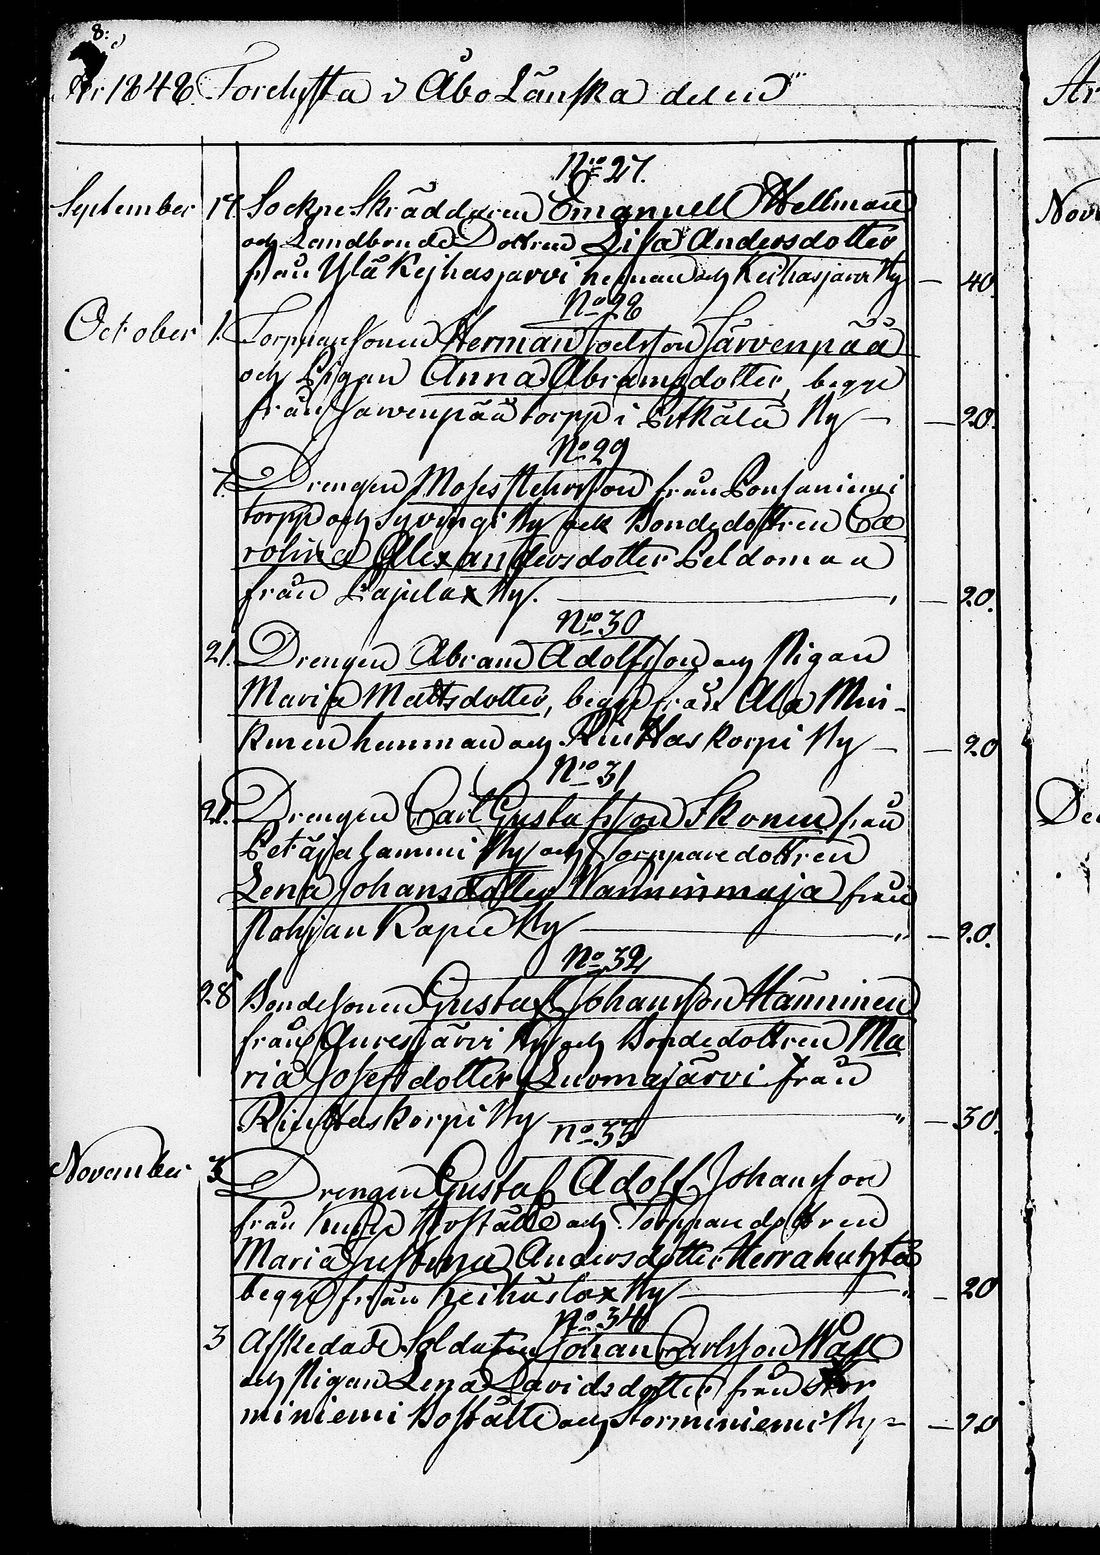 8:
År 1848 Forelysta i Åbo Länska delen
No 27.
September 17. Sockne Skräddaren Emanuel Hellman
och Landbonde Dottren Lisa Andersdotter
från Ylä Kejhasjarvi heman och Keihasjarvi By — 40.
No 28
October 1. Torpparesonen Herman Joelsson Järvenpää
och Pigan Anna Abramsdotter, begge
från Jarvenpää torpp i Pitkälä By — 20.
No 29
7. Drengen Moses från
torpp och By och Bondedottren Ca
rolina Alexandersdotter Peldomaa
från Pajulax By. — 20.
No 30
21. Drengen Abram Adolfsson och Pigan
Maria Mattsdotter, begge från Ala Mur-
hemman och Riuttaskorpi By — 20
No 31
21. Drengen Carl Gustafsson Ikonen från
Petäjälammi By och Torpparedottren
Lena Johansdotter Wanninmaja från
Pohjan Kapée By — 20.
No 32
28 Bondesonen Gustaf Johansson Hänninen
från Auresjärvi By och Bondedottren Ma
ria Josefsdotter Luomajärvi från
Riuttaskorpi By — 30.
No 33
November 3 Drengen Gustaf Adolf Johansson
från Boställe och Torppandottren
Maria Justina Andersdotter Herrakuhta
begge från Keihuslax By — 20
No 34
3 Afskedade Soldaten Johan Carlsson Wass
och Pigan Lena Davidsdotter från Stor
miniemi Boställe och Storminiemi By — 20